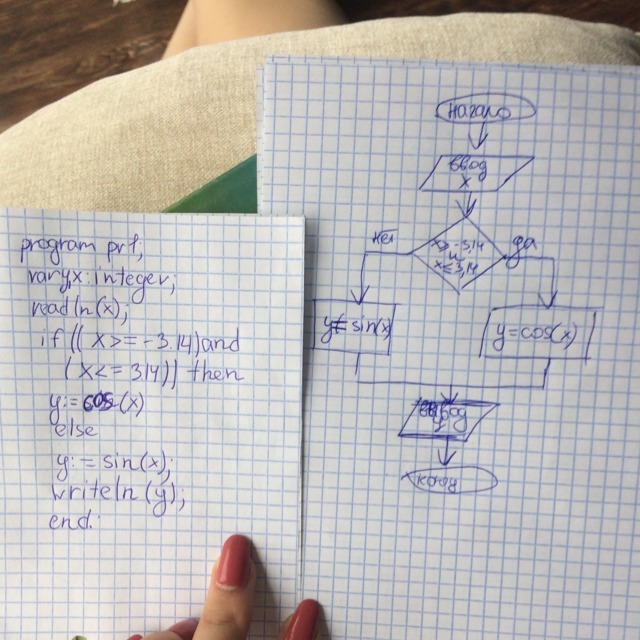 program pr1;
var y,x: integer;
readln(x);
if ((x>=-3.14)and
(x<=3,14)) then
y:=cos(x)
else
y:=sin(x);
writeln(y);
end.
начало
ввод
x
нет
x≥-3,14
и
x≤3,14
да
y=sin(x)
y=cos(x)
вывод
y
конец